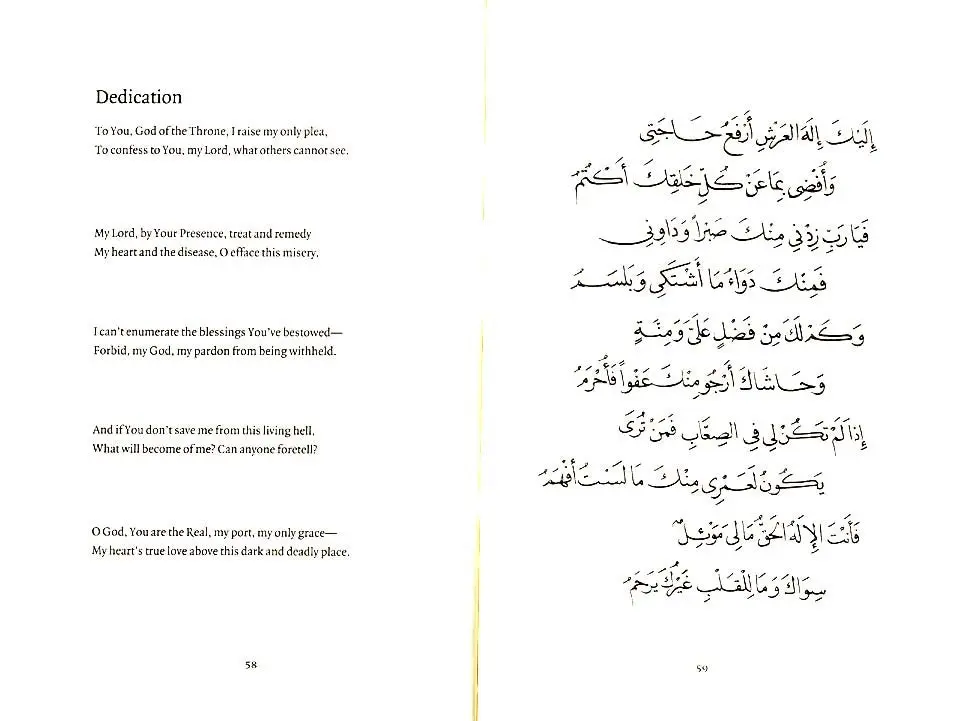 Dedication
To You, God of the Throne, I raise my only plea,
To confess to You, my Lord, what others cannot see.
My Lord, by Your Presence, treat and remedy
My heart and the disease, O efface this misery.
I can't enumerate the blessings You've bestowed—
Forbid, my God, my pardon from being withheld.
And if You don't save me from this living hell,
What will become of me? Can anyone foretell?
O God, You are the Real, my port, my only grace—
My heart's true love above this dark and deadly place.
58
إِلَيْكَ إِلَهَ العَرْشِ أَرْفَعُ حَاجَتِي
وَأُفْضِي بِمَا عَنْ كُلِّ خَلْقِكَ أَكْتُمُ
فَيَا رَبِّ زِدْنِي مِنْكَ صَبْراً وَدَاوِنِي
فَمِنْكَ دَوَاءُ مَا أَشْتَكِي وَبَلْسَمُ
وَكَمْ لَكَ مِنْ فَضْلٍ عَلَيَّ وَمِنَّةٍ
وَحَاشَاكَ أَرْجُو مِنْكَ عَفْواً فَأُحْرَمُ
إِذَا لَمْ تَكُنْ لِي فِي الصِعَابِ فَمَنْ تُرَى
يَكُونُ لَعَمْرِي مِنْكَ مَا لَسْتُ أَفْهَمُ
فَأَنْتَ الإِلَهُ الحَقُّ مَا لِي مَوْئِلٌ
سِوَاكَ وَمَا لِلْقَلْبِ غَيْرُكَ يَرْحَمُ
59